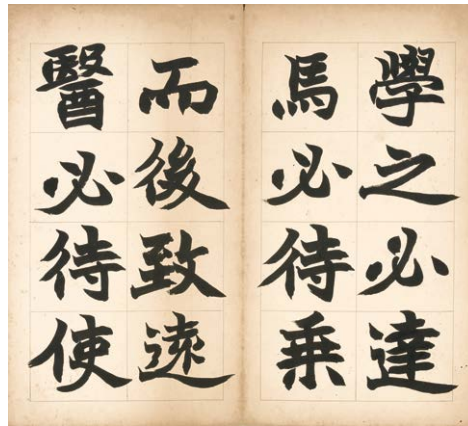 學之必達
馬必待乘
而後致遠
醫必待使